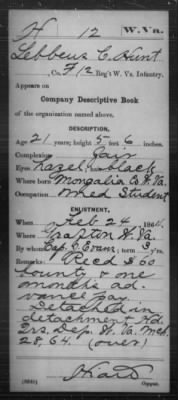 H 12 W. Va.
Lebbeus C. Hunt
Co. F, 12 Reg't W. Va. Infantry.
Appears on
Company Descriptive Book
of the organization named above.
DESCRIPTION.
Age 21 years; height 5 feet 6 inches.
Complexion Fair
Eyes hazel; hair black
Where born Mongalia Co W. Va.
Occupation Med Student
ENLISTMENT.
When Feb 24, 1864.
Where Grafton W. Va.
By whom Cap. Evans; term 3 y'rs.
Remarks: Recd $60
bounty & one
months ad-
vance pay.
Detached in
detachment Hd.
Qrs. Dep. W. Va. Mch
28, 64. (over)
Copyist.